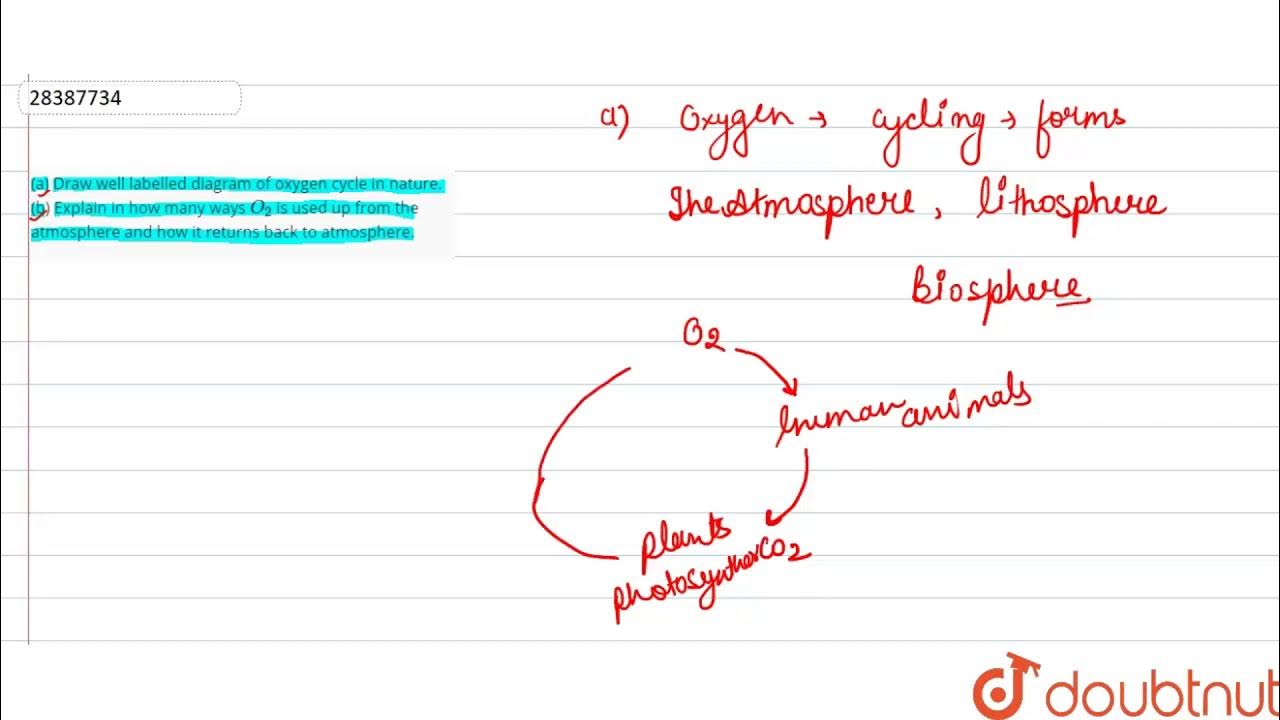 28387734
(a) Draw well labelled diagram of oxygen cycle in nature.
(b) Explain in how many ways O₂ is used up from the
atmosphere and how it returns back to atmosphere.
a) Oxygen → cycling → forms
The Atmosphere, lithosphere
Biosphere
O2
human animals
plants
photosynthesis CO2
doubtnut